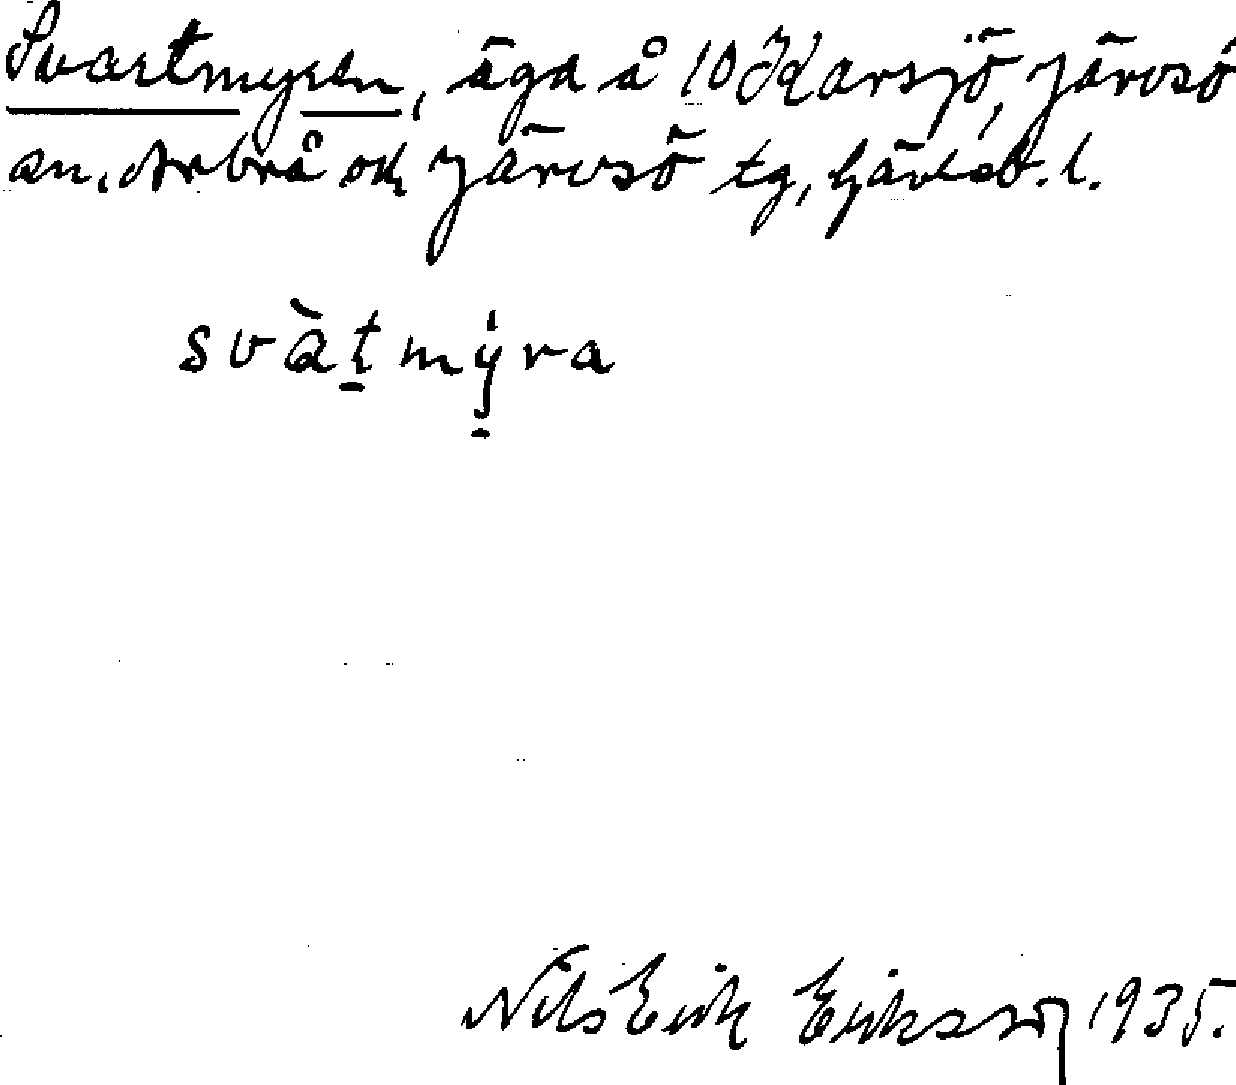 Svartmyren, äga å 10 Karsjö, Järvsö
sn. Arbrå och Järvsö tg, Gävleb. l.
svàt̠mý̠ra
Nils Erik Eriksson 1935.